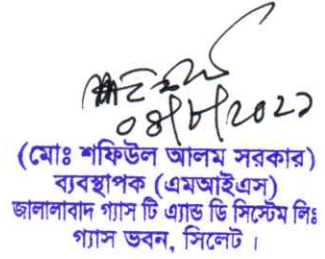 ০৪/৮/২০২১
(মোঃ শফিউল আলম সরকার)
ব্যবস্থাপক (এমআইএস)
জালালাবাদ গ্যাস টি এ্যান্ড ডি সিস্টেম লিঃ
গ্যাস ভবন, সিলেট ।